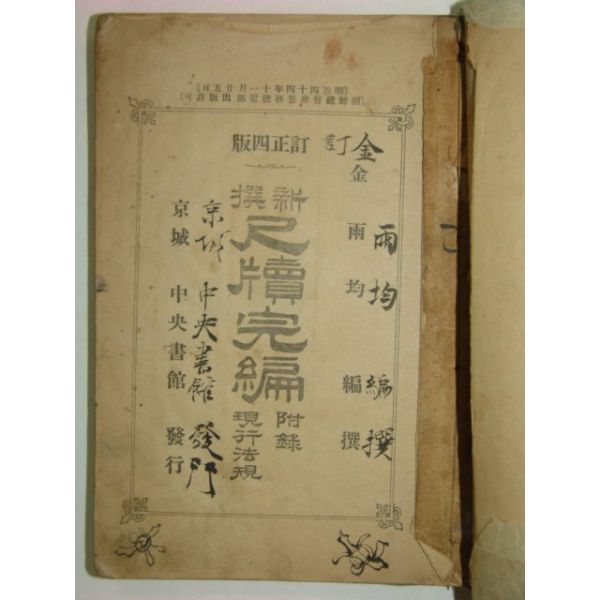 明治四十四年十一月廿五日
朝鮮總督府警務總監部出版許可
訂正四版
訂
金雨均編撰
金雨均編撰
新撰
尺牘完編
附錄
現行法規
京城中央書館發門
京城中央書館發行